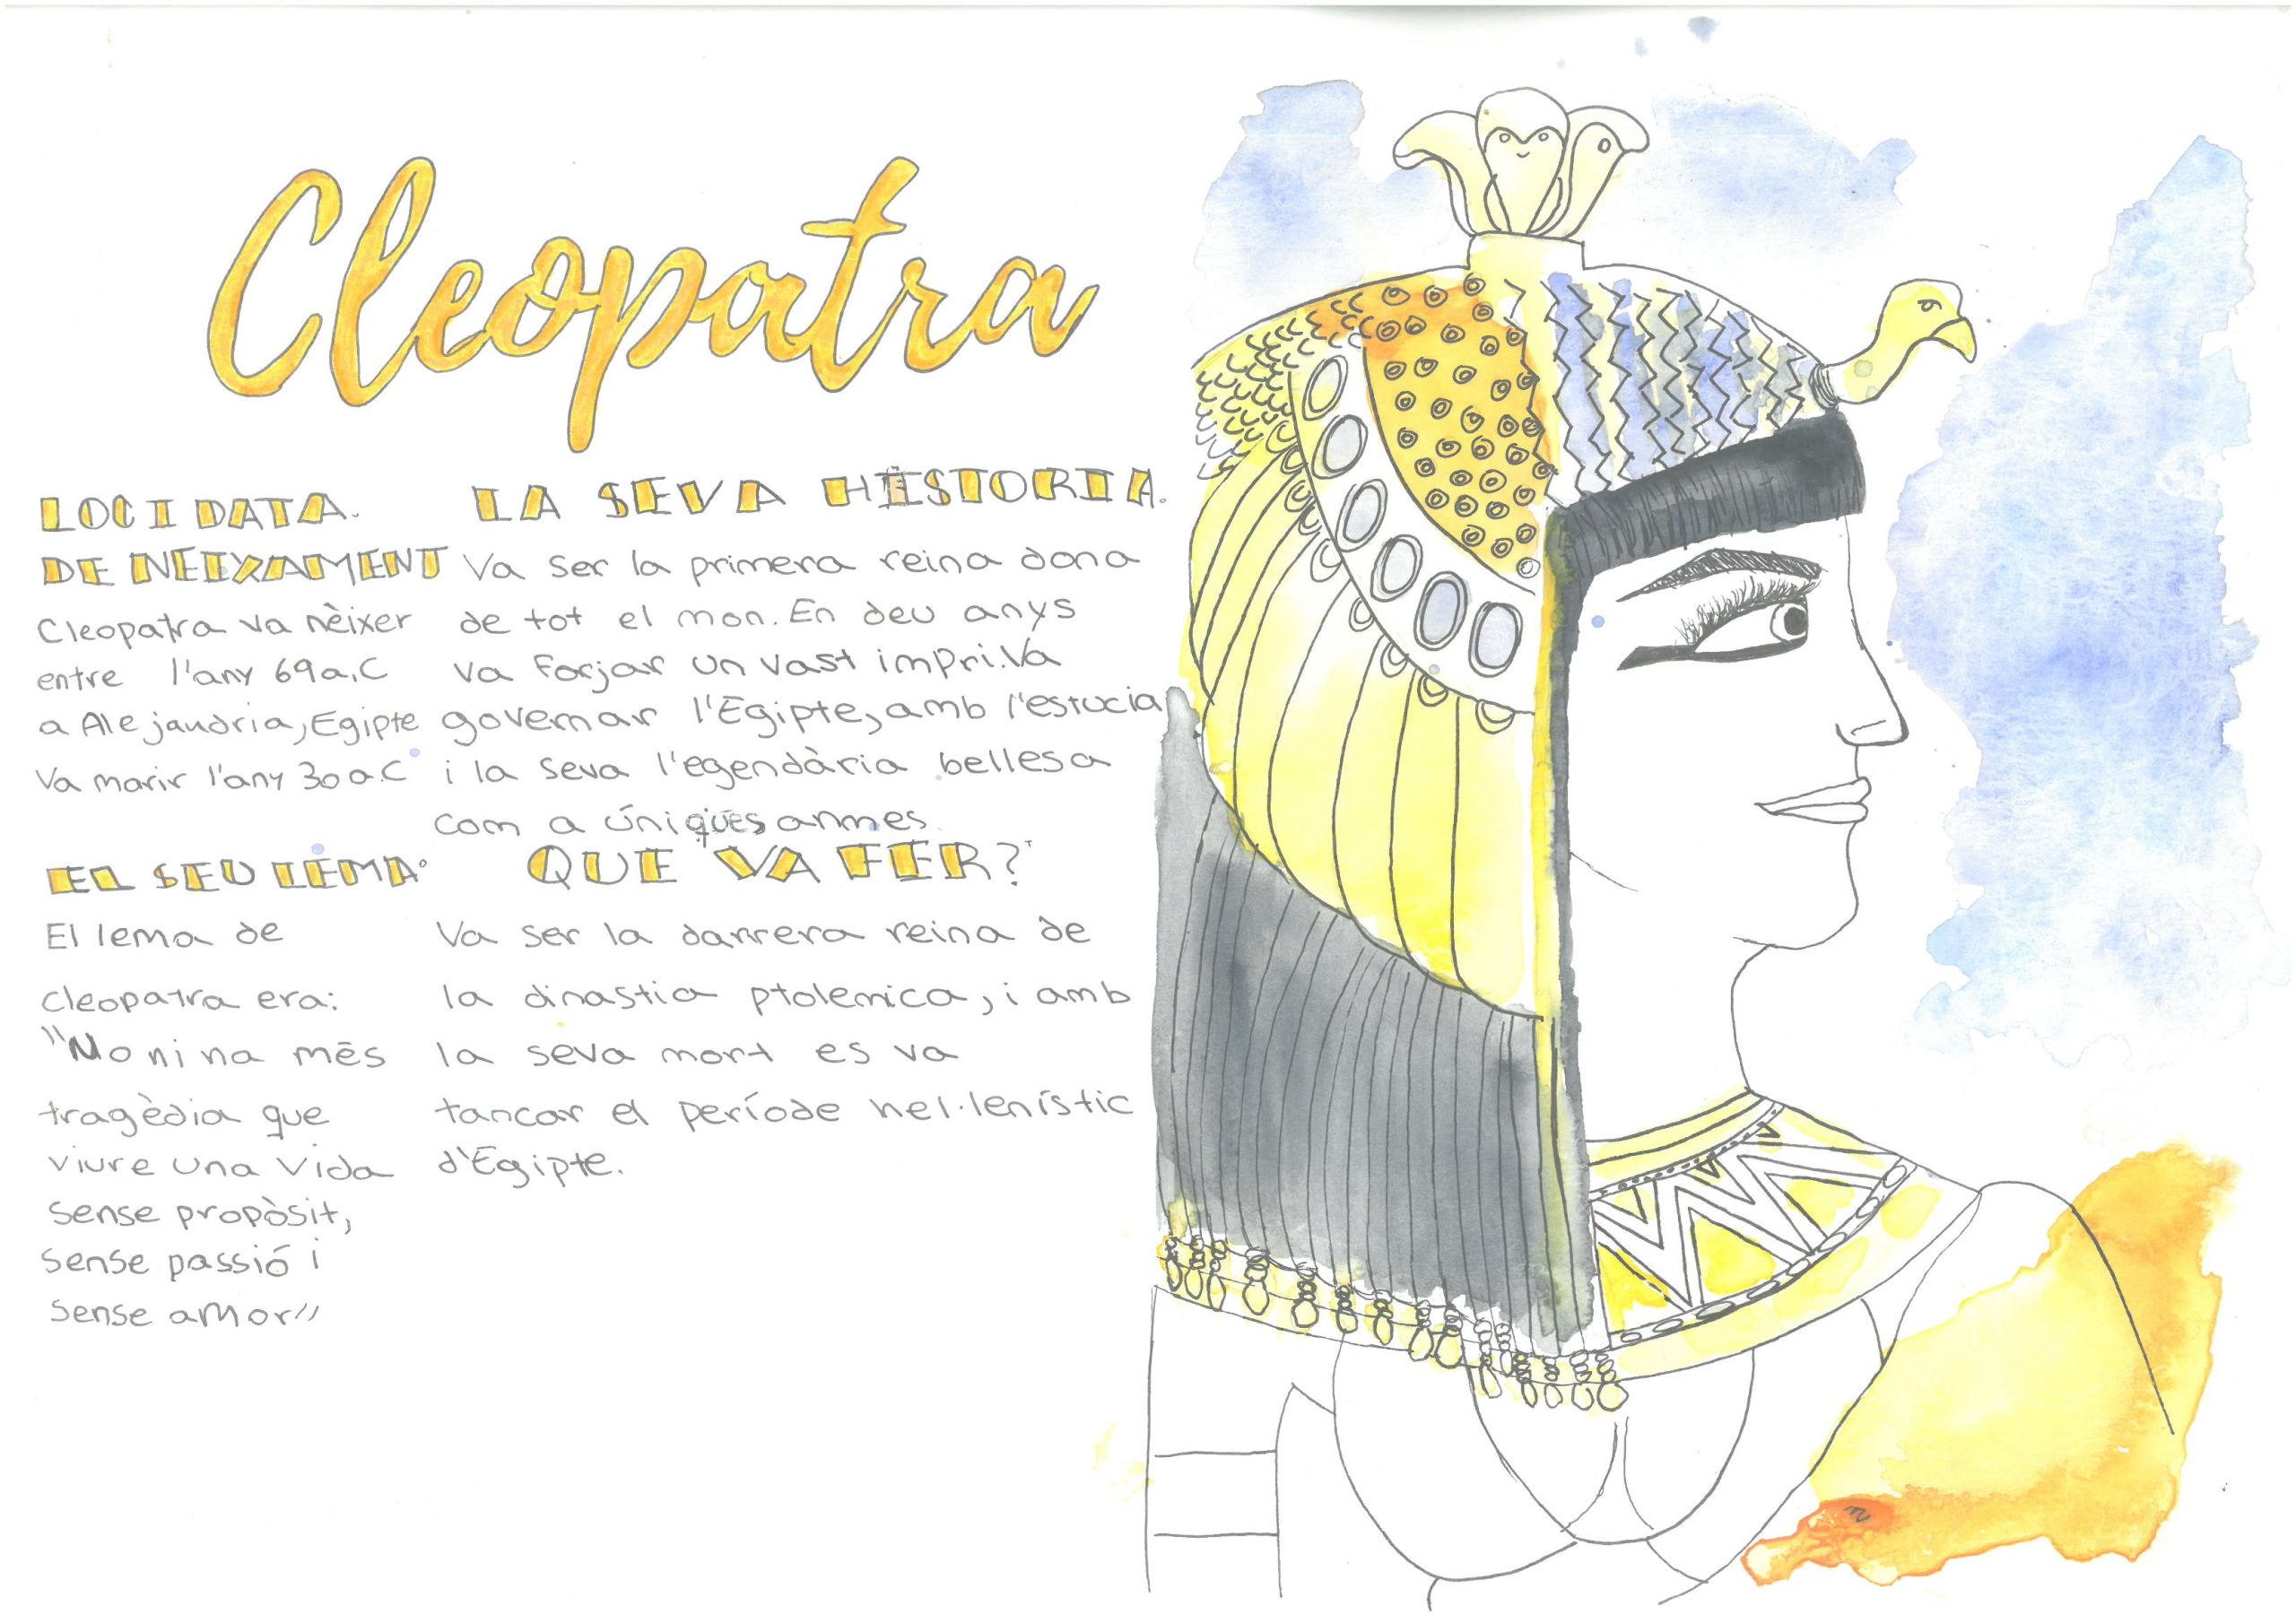 Cleopatra
LOC I DATA.
DE NEIXAMENT
Cleopatra va nèixer
entre l'any 69 a.C
a Alejandria, Egipte
Va morir l'any 30 a.C
EL SEU LEMA:
El lema de
cleopatra era:
"No ni na més
tragèdia que
viure una vida
sense propòsit,
sense passió i
sense amor"
LA SEVA HISTORIA.
Va ser la primera reina dona
de tot el mon. En deu anys
va forjar un vast impri. Va
governar l'Egipte, amb l'estucia
i la seva l'egendària bellesa
com a úniques armes.
QUE VA FER?
Va ser la darrera reina de
la dinastia ptolemica, i amb
la seva mort es va
tancar el període hel·lenístic
d'Egipte.